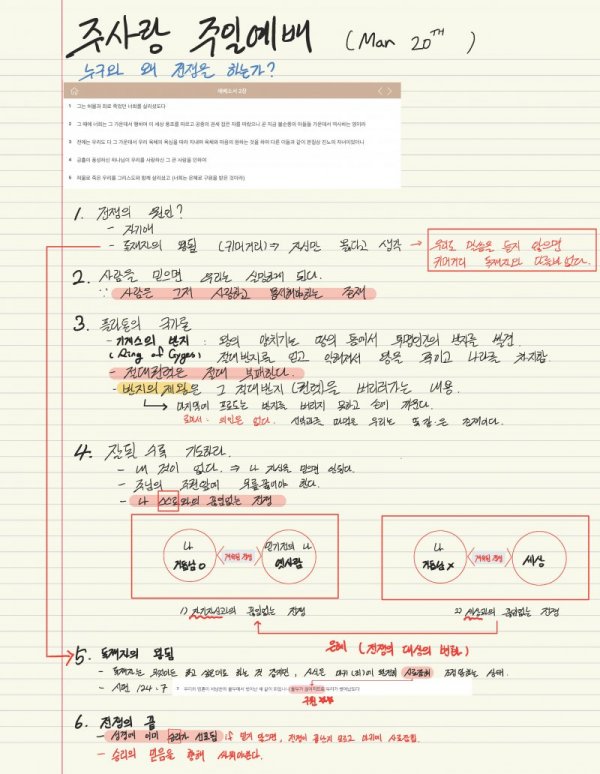 주사랑 주일예배 (Mar 20TH)
누구와 왜 전쟁을 하는가?
에베소서 2장
1 그는 허물과 죄로 죽었던 너희를 살리셨도다
2 그 때에 너희는 그 가운데서 행하여 이 세상 풍조를 따르고 공중의 권세 잡은 자를 따랐으니 곧 지금 불순종의 아들들 가운데서 역사하는 영이라
3 전에는 우리도 다 그 가운데서 우리 육체의 욕심을 따라 지내며 육체와 마음의 원하는 것을 하여 다른 이들과 같이 본질상 진노의 자녀이었더니
4 긍휼이 풍성하신 하나님이 우리를 사랑하신 그 큰 사랑을 인하여
5 허물로 죽은 우리를 그리스도와 함께 살리셨고 (너희는 은혜로 구원을 받은 것이라)
1. 전쟁의 원인?
- 자기애
- 독재자의 함정 (귀머거리) ⇒ 자신만 옳다고 생각
우리도 말씀을 듣지 않으면
귀머거리 독재자와 다를바 없다.
2. 사람을 믿으면 우리는 실망하게 된다.
∵ 사람은 그저 사랑하고 용서해야하는 존재
3. 플라톤의 국가론
- 기게스의 반지 : 왕의 양치기는 땅의 틈에서 투명인간의 반지를 발견.
(Ring of Gyges) 절대반지를 얻고 악해져서 왕을 죽이고 나라를 차지함
- 절대권력은 절대 부패한다.
- 반지의 제왕은 그 절대반지(권력)을 버리러가는 내용.
↳ 마지막에 프로도는 반지를 버리지 못하고 손에 끼운다.
로마서 : 의인은 없다. 선악과를 따먹은 우리는 똑같은 존재이다.
4. 잘될 수록 기도하라.
- 내 것이 없다. ⇒ 나 자신을 믿으면 안된다.
- 주님의 주권앞에 무릎꿇어야 한다.
- 나 스스로와의 끊임없는 전쟁
나 거듭남 O 거룩한 전쟁 믿기전의 나 옛사람
나 거듭남 X 거룩한 전쟁 세상
1) 자기자신과의 끊임없는 전쟁
2) 세상과의 끊임없는 전쟁
은혜 (전쟁의 대상의 변화)
5. 독재자의 함정
- 독재자는 무엇이든 하고 싶은대로 하는 것 같지만, 자신은 마귀(죄)에 완전히 사로잡혀 조종당하는 상태.
- 시편 124:7
7 우리의 영혼이 사냥꾼의 올무에서 벗어난 새 같이 되었나니 올무가 끊어지므로 우리가 벗어났도다
구원
6. 전쟁의 끝
- 성경에 이미 승리가 선포됨 ⇒ 믿지 않으면, 전쟁이 끝난지 모르고 마귀에 사로잡힘.
- 승리의 믿음을 통해 싸워야한다.